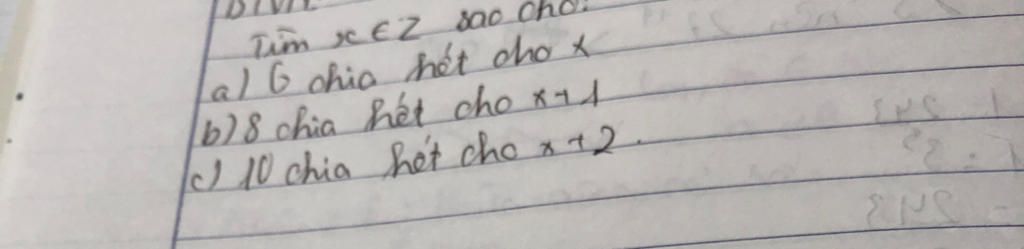 Tìm x ∈ Z sao cho:
a) 6 chia hết cho x
b) 8 chia hết cho x+1
c) 10 chia hết cho x+2.